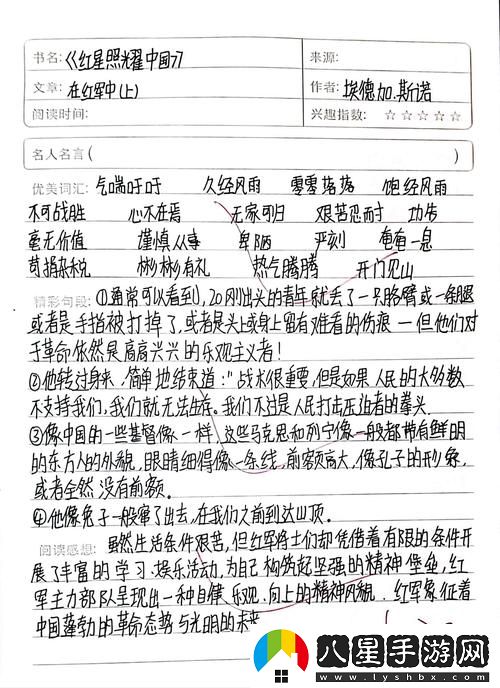 书名:《红星照耀中国》 来源:
文章: 在红军中(上) 作者: 埃德加.斯诺
阅读时间: 兴趣指数: ☆☆☆☆☆
名人名言( )
优美词汇: 气喘吁吁 久经风雨 零零落落 饱经风雨
不可战胜 心不在焉 无家可归 艰苦忍耐 功伟
毫无价值 谨慎从事 卑陋 严刻 奄奄一息
苛捐杂税 彬彬有礼 热气腾腾 开门见山
精彩句段: ①通常可以看到,20刚出头的青年就丢了一只胳臂或一条腿
或者是手指被打掉了,或者是头上或身上留有难看的伤痕—但他们对
于革命依然是高高兴兴的乐观主义者!
②他转过身来,简单地结束道:"战术很重要,但是如果人民的大多数
不支持我们,我们就无法生存。我们不过是人民打击压迫者的拳头.
③像中国的一些基督像一样,这些马克思和列宁像一般都带有鲜明
的东方人的外貌,眼睛细得像一条线,前额高大,像孔子的形象,
或者全然没有前额。
④他像兔子一般窜了出去,在我们之前到达山顶。
阅读感想: 虽然生活条件艰苦,但红军将士们却凭借着有限的条件开
展了丰富的学习.娱乐活动,为自己构筑起坚强的精神堡垒,红
军主力部队呈现出一种自律、乐观、向上的精神风貌.红军象征着
中国蓬勃的革命态势与光明的未来
八星手游网
www.lyshbx.com